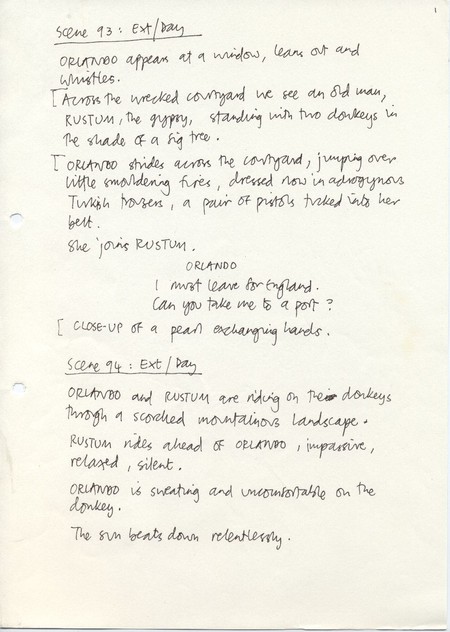 1
Scene 93 : Ext/Day
ORLANDO appears at a window, leans out and
whistles.
[Across the wrecked courtyard we see an old man,
RUSTUM, the gypsy, standing with two donkeys in
the shade of a fig tree.
[ORLANDO strides across the courtyard, jumping over
little smouldering fires, dressed now in adrogynous
Turkish trousers, a pair of pistols tucked into her
belt.
She joins RUSTUM.
ORLANDO
I must leave for England.
Can you take me to a port?
[CLOSE-UP of a pearl exchanging hands.
Scene 94 : Ext/Day
ORLANDO and RUSTUM are riding on their donkeys
through a scorched mountainous landscape.
RUSTUM rides ahead of ORLANDO, impassive,
relaxed, silent.
ORLANDO is sweating and uncomfortable on the
donkey.
The sun beats down relentlessly.